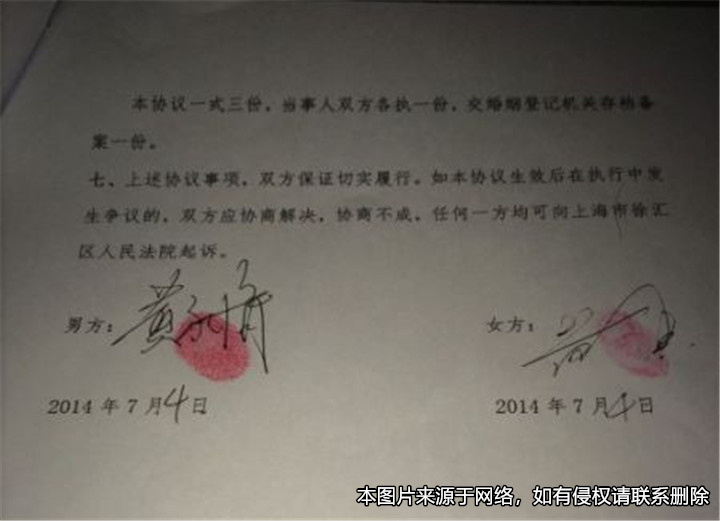 本协议一式三份，当事人双方各执一份，交婚姻登记机关存档备
案一份。
七、上述协议事项，双方保证切实履行。如本协议生效后在执行中发
生争议的，双方应协商解决，协商不成，任何一方均可向上海市徐汇
区人民法院起诉。
男方：黄
女方：
2014 年 7 月 4 日
2014 年 7 月 4 日
本图片来源于网络，如有侵权请联系删除